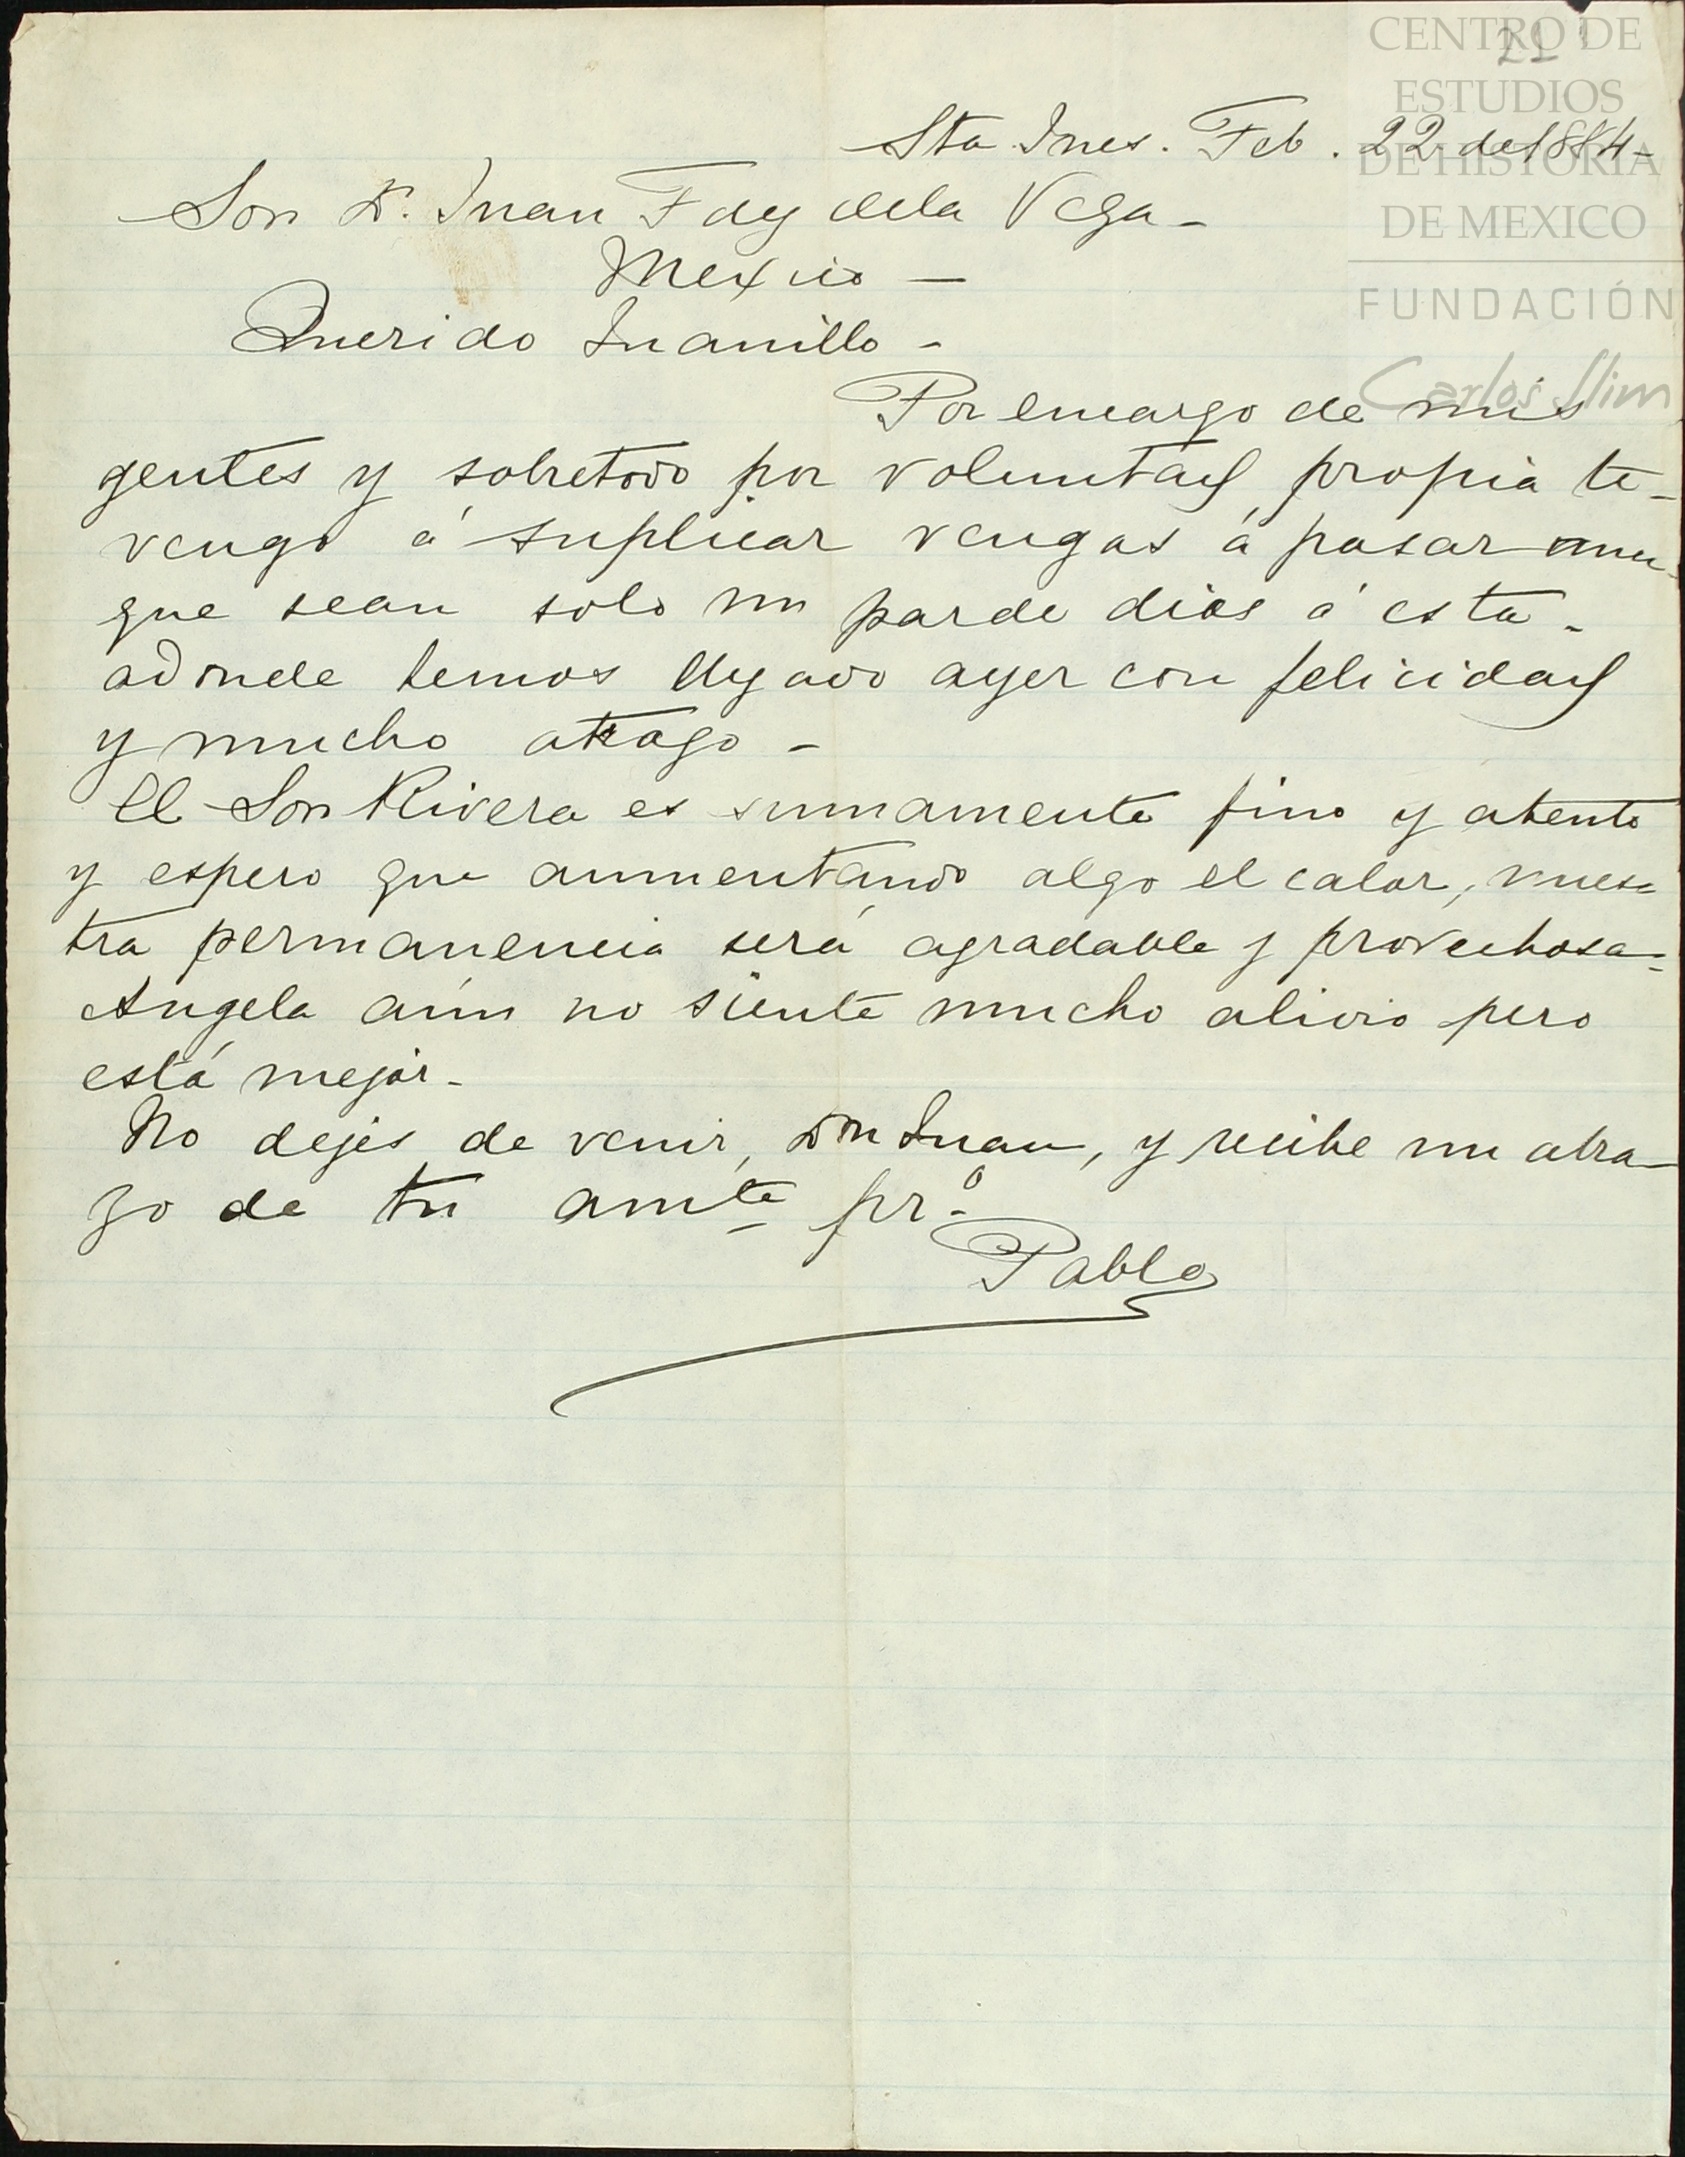 21
CENTRO DE
ESTUDIOS
DE HISTORIA
DE MEXICO
FUNDACIÓN
Carlos Slim
Sta Ines. Feb. 22 de 1884-
Sor D. Juan Fdez dela Vega-
Mexico —
Querido Juanillo -
Por encargo de mis
gentes y sobretodo por voluntad propia te-
vengo á suplicar vengas á pasar aun-
que sean solo un par de dias á esta-
adonde hemos llegado ayer con felicidad
y mucho atrazo -
El Sor Rivera es sumamente fino y atento
y espero que aumentando algo el calor, nues=
tra permanencia será agradable y provechosa=
Angela aún no siente mucho alivio pero
está mejor-
No dejes de venir, Don Juan, y recibe un abra-
zo de tu amte pro
Pablo